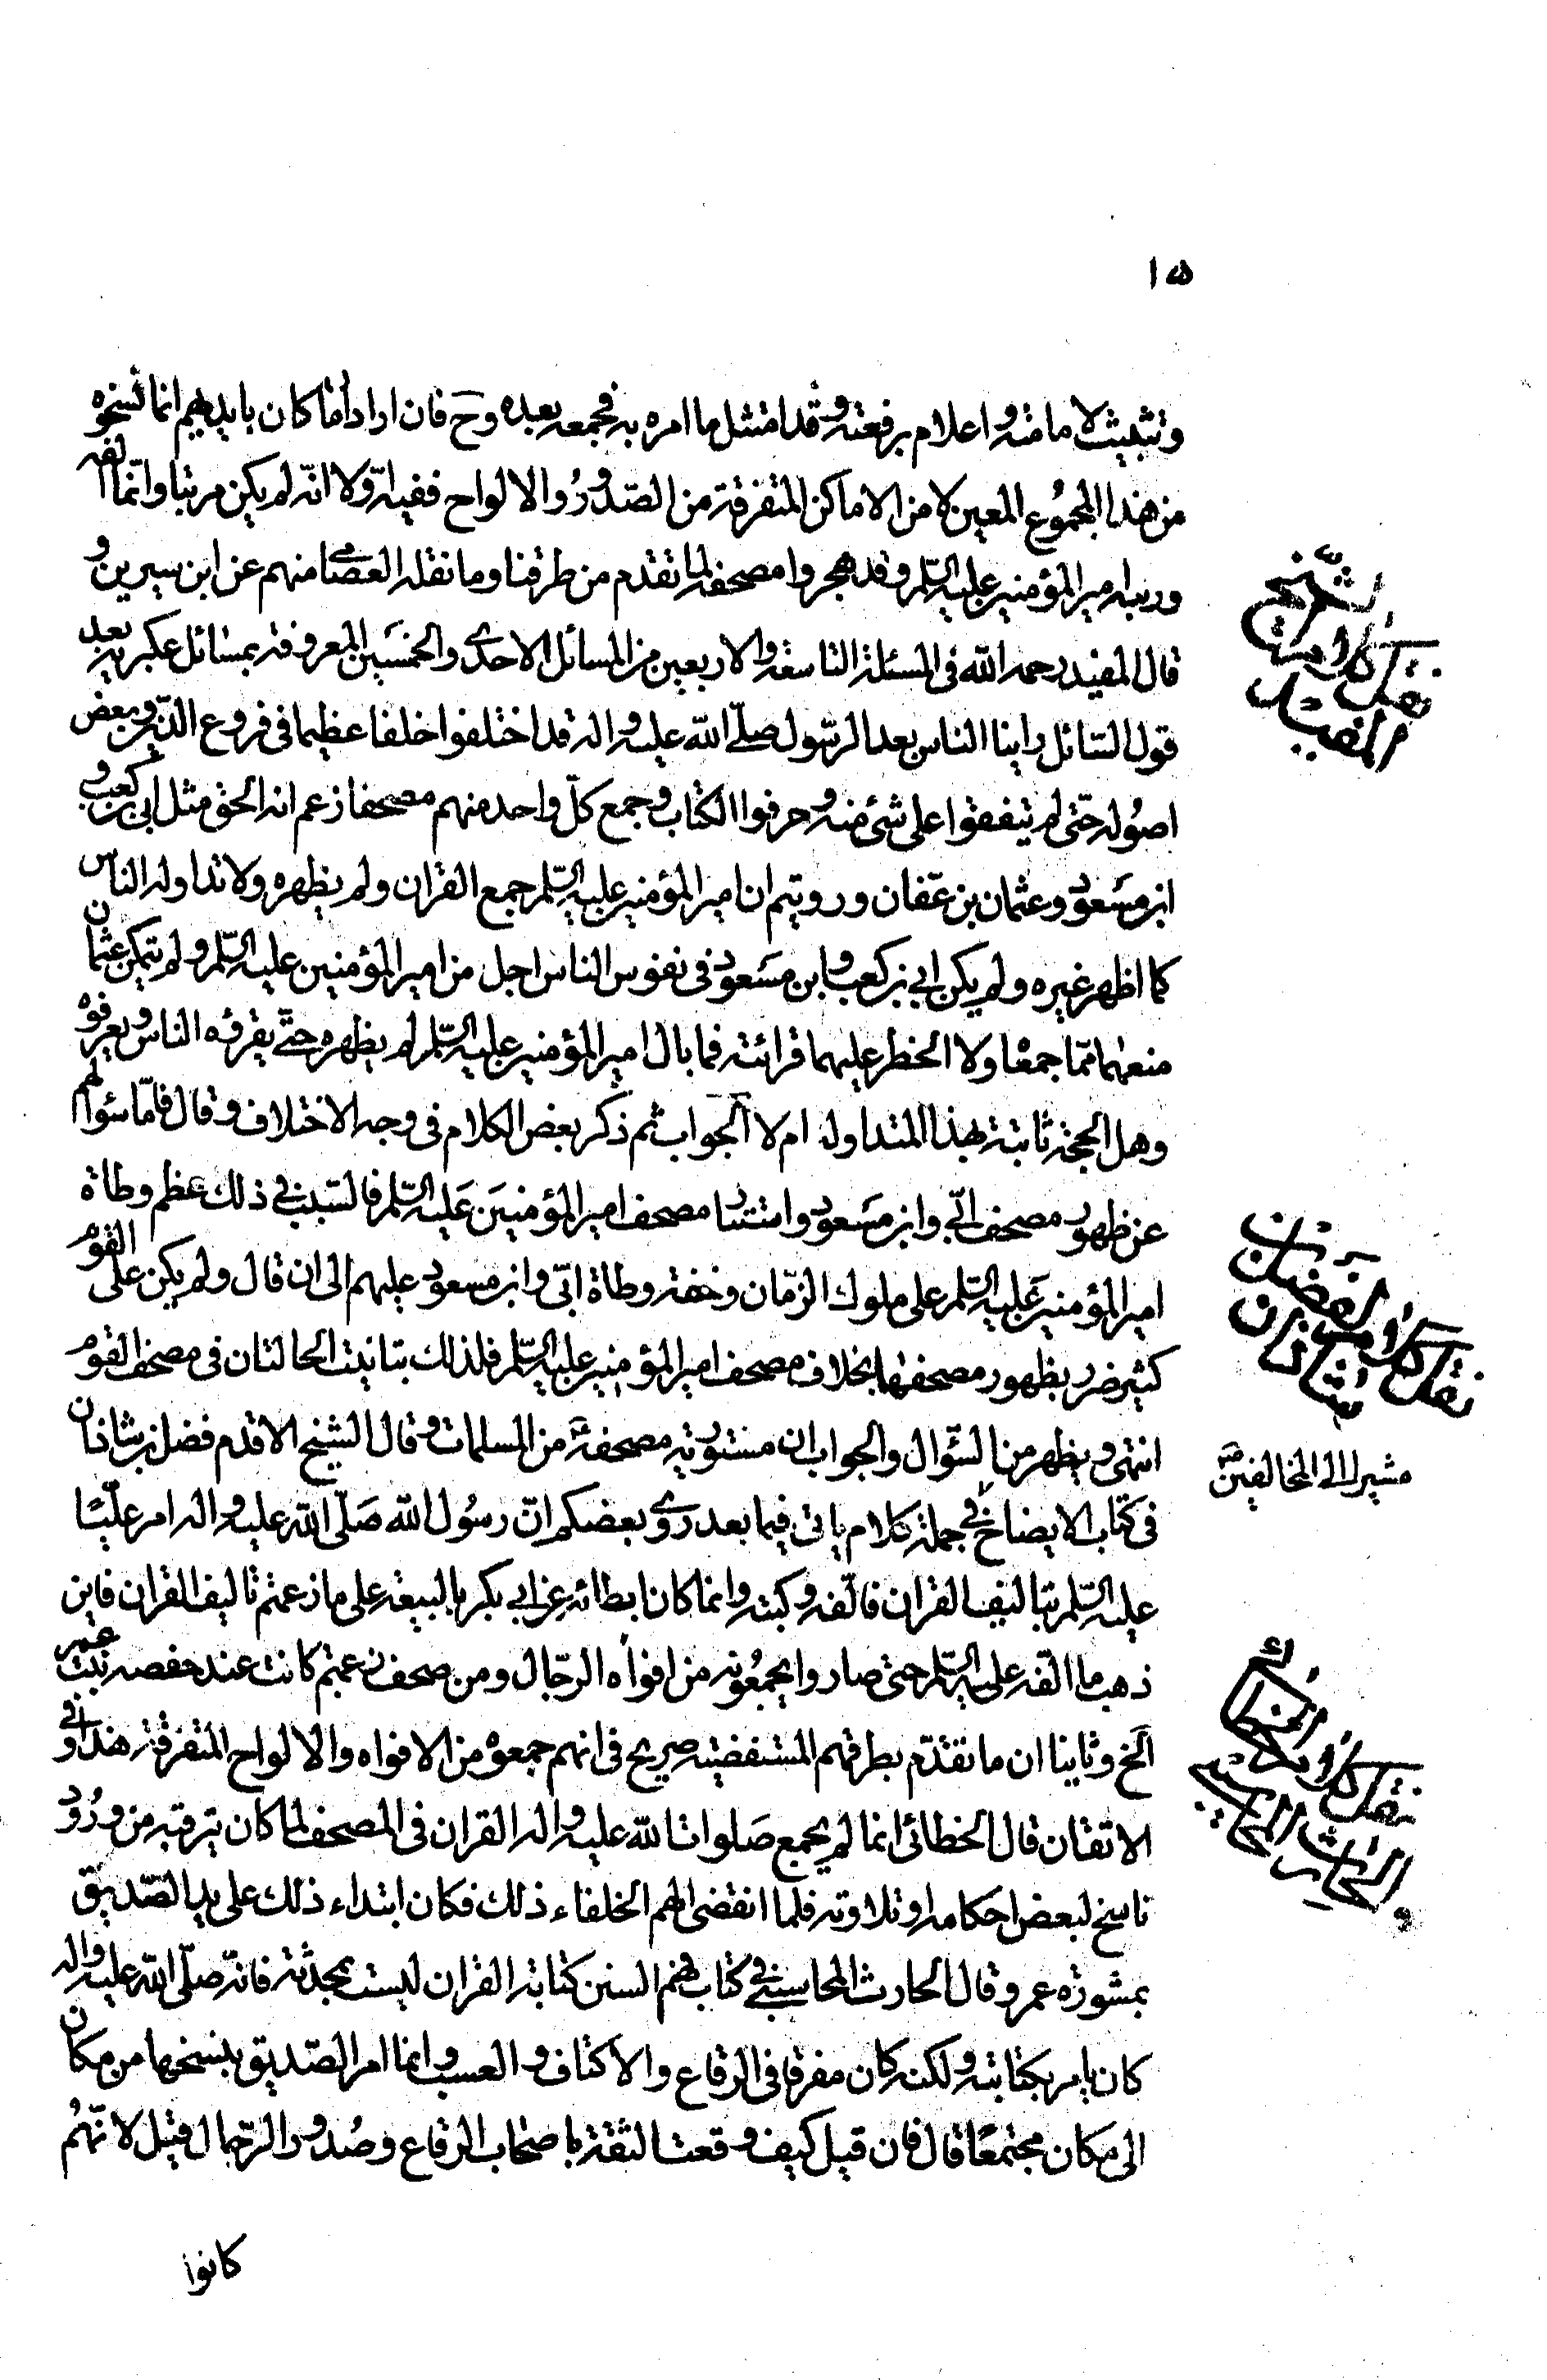 ١٥
وتثبيت لامامته واعلام برفعته وقد امتثل ما امره به فجمعه بعده وح فان ارادا ما كان بايديهم انما نسخوه
من هذا المجموع المعين لا من الاماكن المتفرقة من الصدور والالواح ففيه اوّلا انه لم يكن مرتبا وانّما الّفه
ورتبه امير المؤمنين عليه السّلم وقد هجروا مصحفه لما تقدم من طرقنا وما نقله العصّامنهم عن ابن سيرين و
قال المفيد رحمه الله فى المسئلة التاسعة والاربعين من المسائل الاحدى والخمسين المعروفة بمسائل عكبريه بعد
قول السّائل راينا الناس بعد الرسّول صلّى الله عليه واله قد اختلفوا خلفا عظيما فى فروع الدّين وبعض
اصوله حتّى لم يتفقوا على شئ منه وحرفوا الكتاب وجمع كلّ واحد منهم مصحفا زعم انه الحق مثل ابى بن كعب و
ابن مسَعود وعثمان بن عفّان ورويتم ان امير المؤمنين عليه السّلم جمع القران ولم يظهره ولا تداوله الناس
كما اظهر غيره ولم يكن ابى بن كعب وابن مسَعود فى نفوس الناس اجل من امير المؤمنين عليه السّلم ولم يتمكن عثمان
منعهما ممّا جمعا ولا الحظر عليهما قرائته فما بال امير المؤمنين عليه السّلم لم يظهره حتّى يقرئه الناس ويعرفوه
وهل الحجة ثابتة بهذا المتداوله ام لا الجواب ثم ذكر بعض الكلام فى وجه الاختلاف وقال فامّا سئوالهم
عن ظهور مصحف ابّى وابن مسَعود وامتناد مصحف امير المؤمنين عَليه السّلم فالسّبب فى ذلك عظم وطاة
امير المؤمنين عَليه السّلم على ملوك الزّمان وخفة وطاة ابّى وابن مسعود عليهم الى ان قال ولم يكن على القوم
كثير ضرر بظهور مصحفهما بخلاف مصحف امير المؤمنين عليه السّلم فلذلك تباينت الحالتان فى مصحف القوم
انتهى ويظهر من السّؤال والجواب ان مستوريّة مصحفه من المسلمات وقال الشيخ الاقدم فضل بن شاذان
فى كتاب الايضاح فى جملة كلام ياتى فيما بعد روى بعضكم انّ رسُول الله صَلّى الله عليه واله امر علّيًا
عليه السّلم بتاليف القران فالّفه وكتبه وانما كان ابطائه عن ابى بكر بالبيعة على ما زعمتم تاليف القران فاين
ذهب ما الّفه عليه السّلم حتى صاروا يجمعُونه من افواه الرجّال ومن صحف زعمتم كانت عند حفصه بنت عمر
الَخ وثانيا ان ما تقدّم بطرقهم المستفضيه صريح فى انهم جمعوه من الافواه والالواح المتفرقة هذا وفى
الاتقان قال الخطائى انما لم يجمع صَلوات الله عليه واله القران فى المصحف لما كان يترقبه من ورُود
ناسخ لبعض احكامه او تلاوته فلما انقضى الهم الخلفاء ذلك فكان ابتداء ذلك على يد الصّديق
بمشورة عمر وقال الحارث المحاسبى فى كتاب فهم السنن كتابة القران ليست بمحدثة فانّه صلّى الله عليه واله
كان يامر بكتابته ولكنه كان مفرقا فى الرقاع والاكتاف والعسب وانما امر الصّديق بنسخها من مكان
الى مكان مجتمعًا قال فان قيل كيف وقعت الثقة باصحاب الرقاع وصُدور الرّجال قيل لانّهُم
كانوا
نقل كلام الشّيخ
المفيد
نقل كلام فضل بن
شاذان
مشيرا الى المخالفين
نقل كلام الخطائى
والحارث المحاسبى